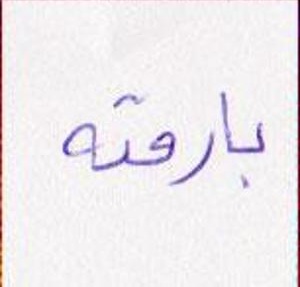 بارقته